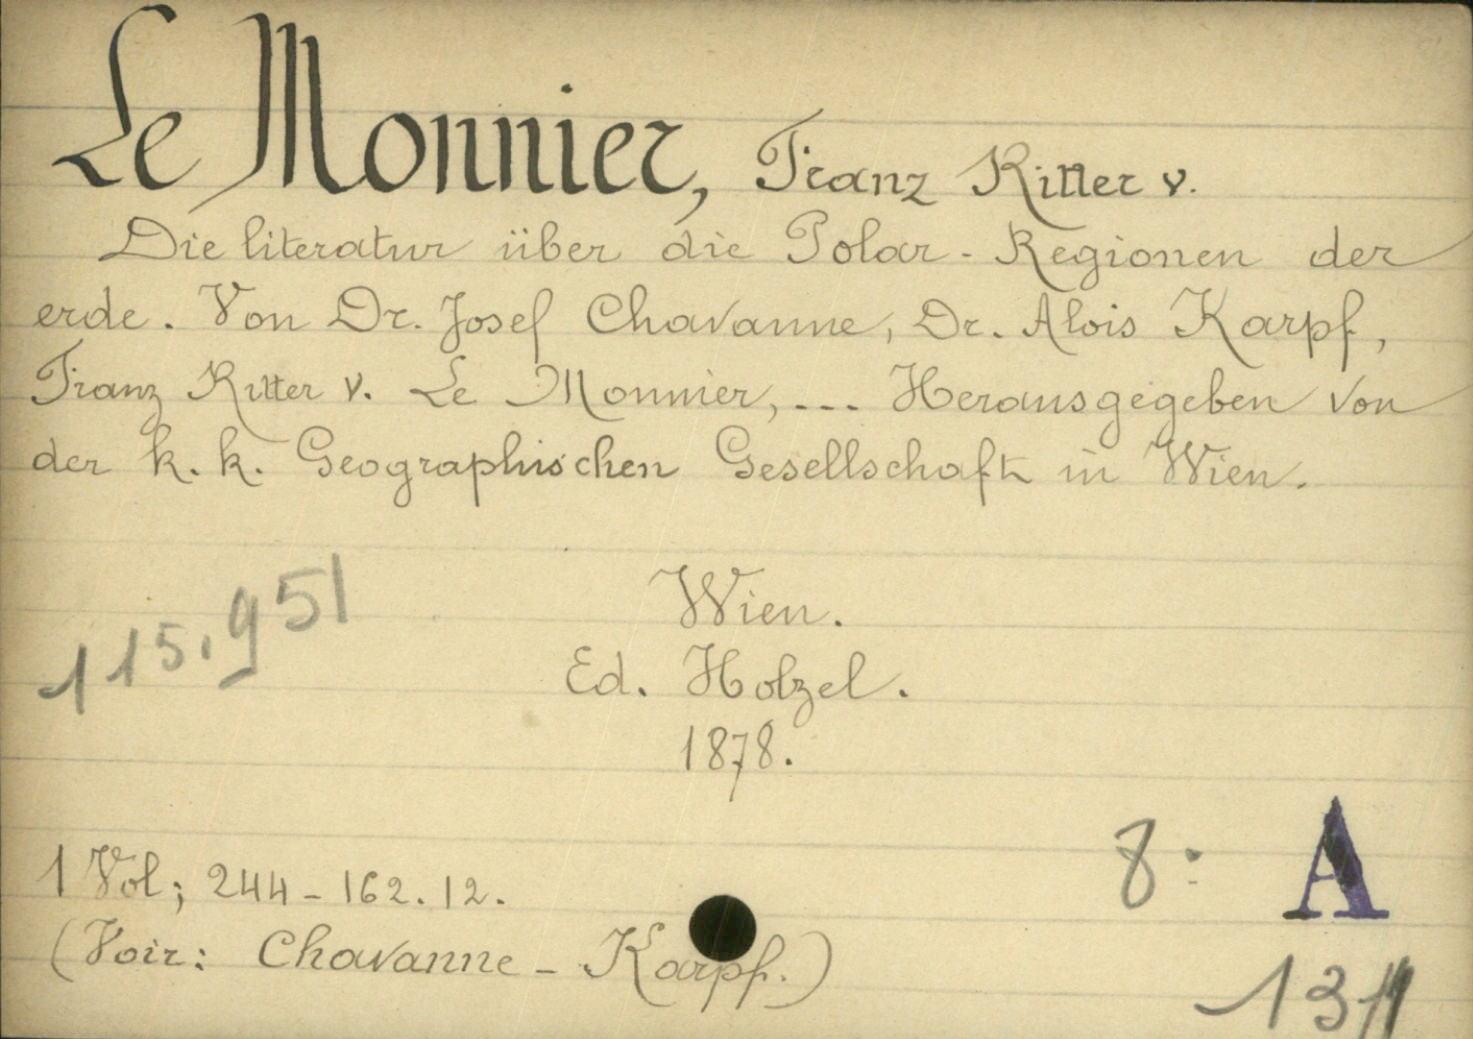 Le Monnier, Franz Ritter v.
Die literatur über die Polar-Regionen der
erde. Von Dr. Josef Chavanne, Dr. Alois Karpf,
Franz Ritter v. Le Monnier, ... Herausgegeben von
der k. k. Geographischen Gesellschaft in Wien.
115.951
Wien.
Ed. Holzel.
1878.
1 Vol; 244-162.12.
8: A
(Voir: Chavanne - Karpf.)